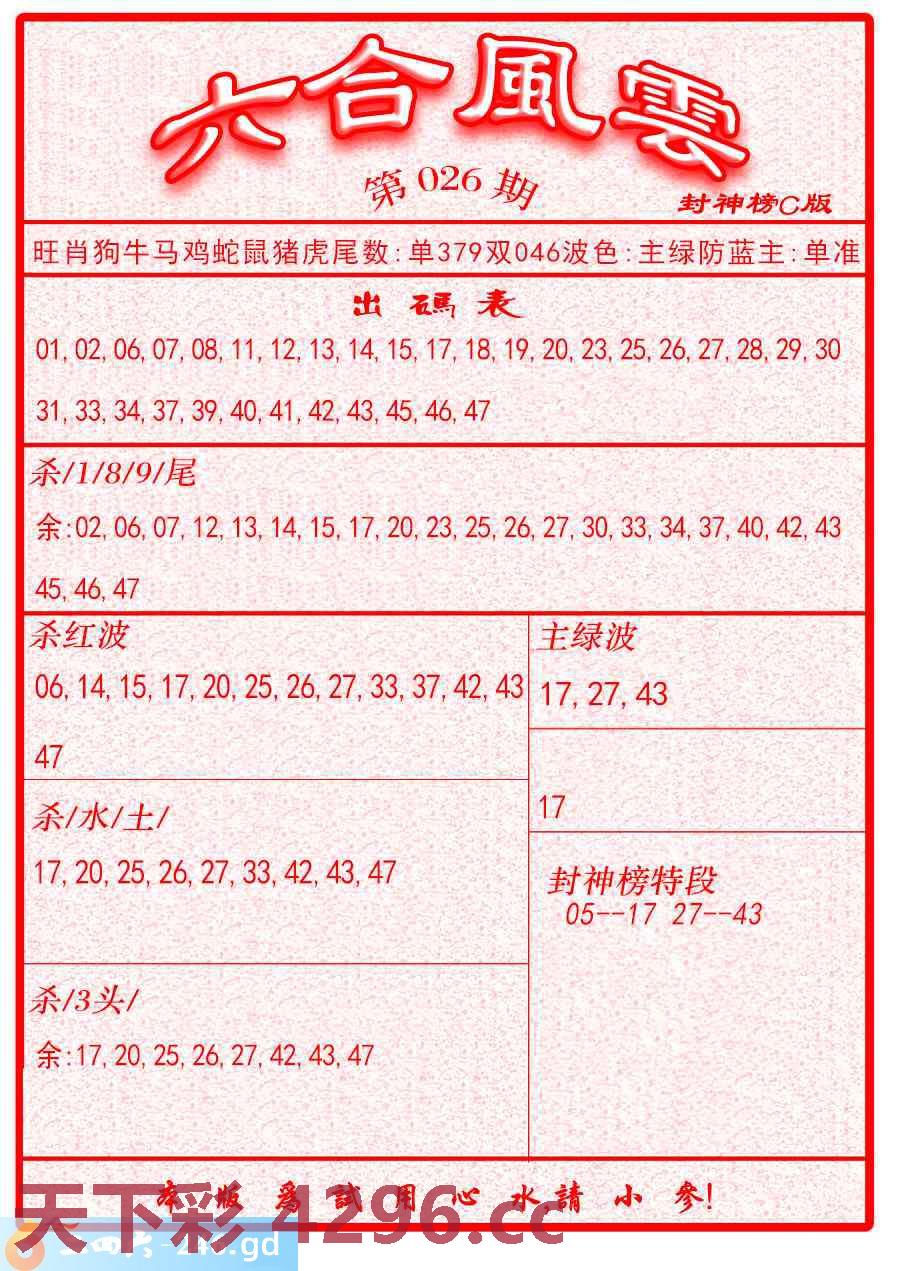 六合風雲
第026期
封神榜C版
旺肖狗牛马鸡蛇鼠猪虎尾数:单379双046波色:主绿防蓝主:单准
出碼表
01,02,06,07,08,11,12,13,14,15,17,18,19,20,23,25,26,27,28,29,30
31,33,34,37,39,40,41,42,43,45,46,47
杀/1/8/9/尾
余:02,06,07,12,13,14,15,17,20,23,25,26,27,30,33,34,37,40,42,43
45,46,47
杀红波
06,14,15,17,20,25,26,27,33,37,42,43
47
主绿波
17,27,43
17
杀/水/土/
17,20,25,26,27,33,42,43,47
封神榜特段
05--17 27--43
杀/3头/
余:17,20,25,26,27,42,43,47
本版爲試用心水,請小參!
天下彩 4296.cc